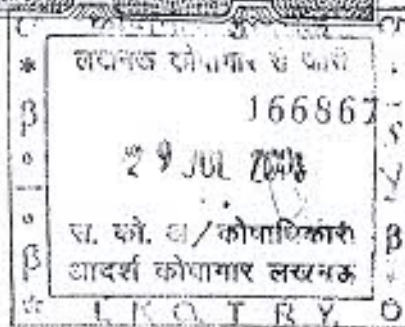 लखनऊ कोषागार से जारी
166867
29 JUL
स. को. अ/कोषाधिकारी
आदर्श कोषागार लखनऊ
L K O T R Y